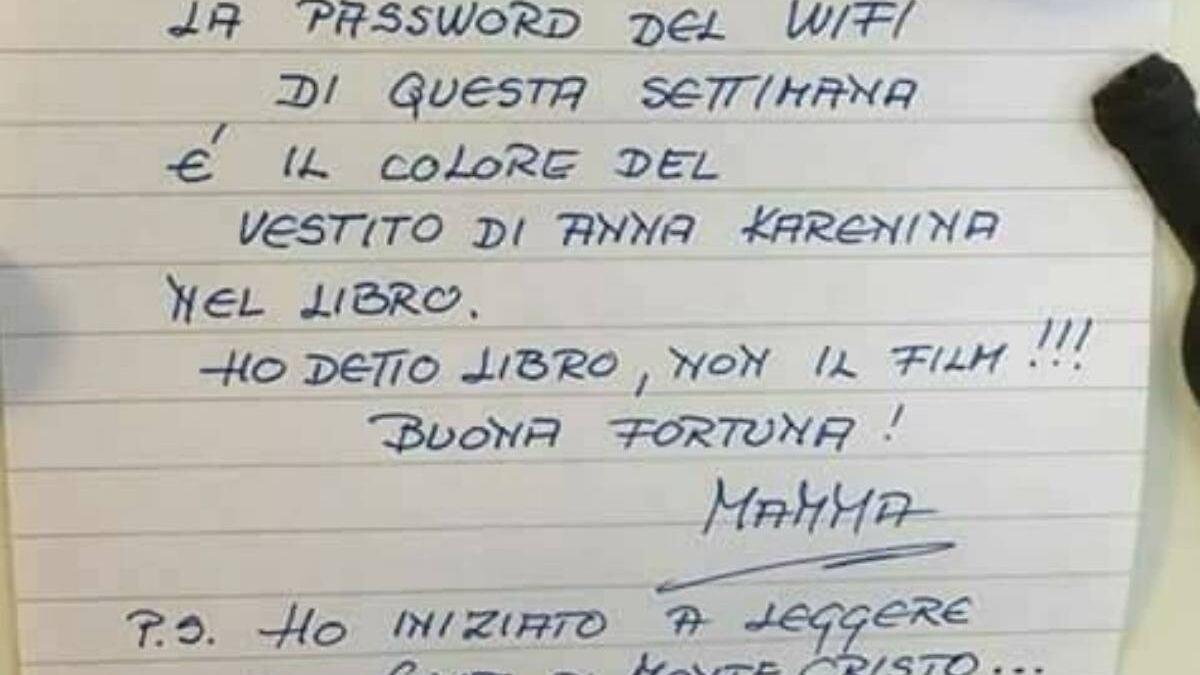 LA PASSWORD DEL WIFI
DI QUESTA SETTIMANA
E' IL COLORE DEL
VESTITO DI ANNA KARENINA
NEL LIBRO.
HO DETTO LIBRO, NON IL FILM!!!
BUONA FORTUNA!
MAMMA
P.S. HO INIZIATO A LEGGERE
DI MONTE CRISTO...